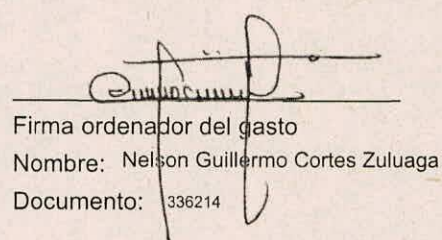 Firma ordenador del gasto
Nombre: Nelson Guillermo Cortes Zuluaga
Documento: 336214